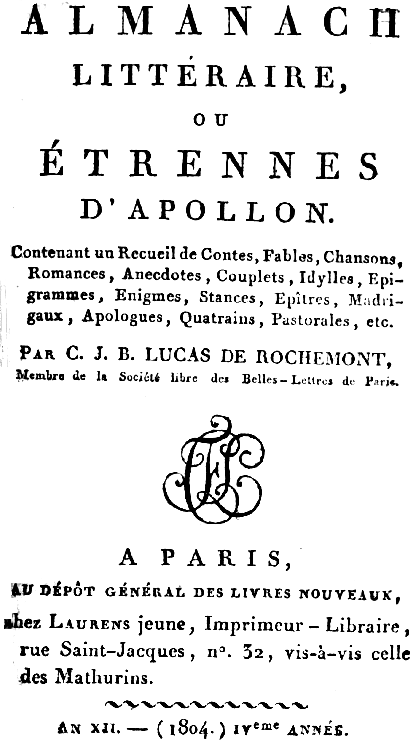 ALMANACH
LITTÉRAIRE,
OU
ÉTRENNES
D'APOLLON.
Contenant un Recueil de Contes, Fables, Chansons,
Romances, Anecdotes, Couplets, Idylles, Epi-
grammes, Enigmes, Stances, Epîtres, Madri-
gaux, Apologues, Quatrains, Pastorales, etc.
PAR C. J. B. LUCAS DE ROCHEMONT,
Membre de la Société libre des Belles-Lettres de Paris.
A PARIS,
AU DÉPÔT GÉNÉRAL DES LIVRES NOUVEAUX,
chez LAURENS jeune, Imprimeur-Libraire,
rue Saint-Jacques, nº. 32, vis-à-vis celle
des Mathurins.
AN XII. — (1804.) IVeme ANNÉE.